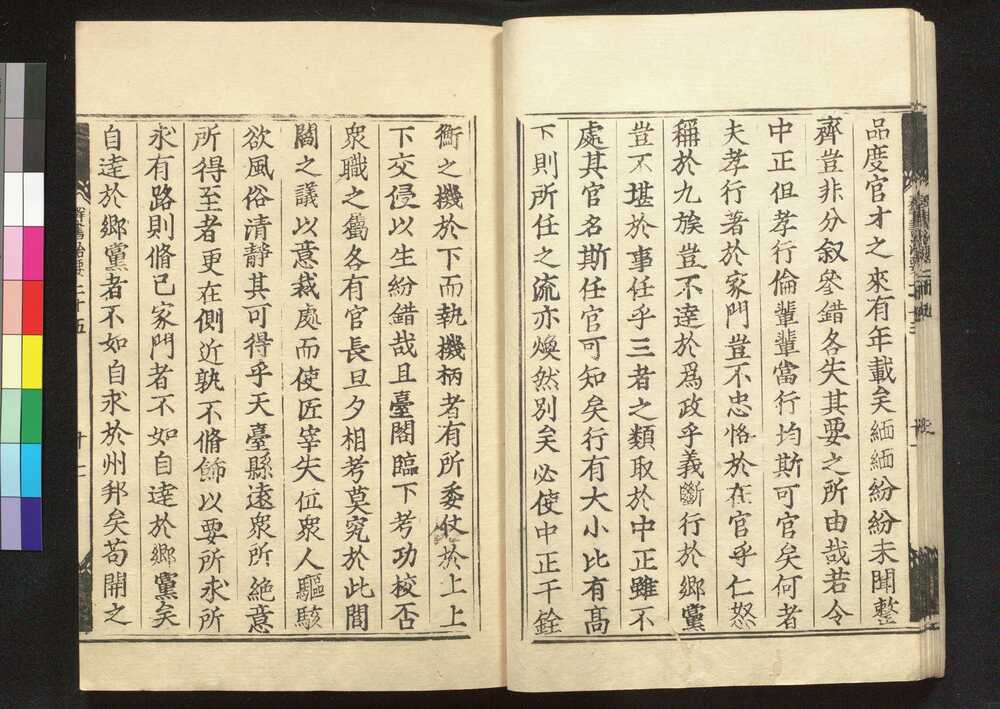 品度官才之來有年載矣緬緬紛紛未聞整
齊豈非分叙參錯各失其要之所由哉若令
中正但孝行倫輩輩當行均斯可官矣何者
夫孝行著於家門豈不忠恪於在官乎仁恕
稱於九族豈不達於爲政乎義斷行於鄉黨
豈不堪於事任乎三者之類取於中正雖不
處其官名斯任官可知矣行有大小比有高
下則所任之流亦煥然別矣必使中正干銓
衡之機於下而執機柄者有所委仗於上上
下交侵以生紛錯哉且臺閣臨下考功校否
衆職之屬各有官長旦夕相考莫究於此閭
閻之議以意裁處而使匠宰失位衆人驅駭
欲風俗清靜其可得乎天臺縣遠衆所絶意
所得至者更在側近孰不脩飾以要所求所
求有路則脩己家門者不如自達於鄉黨矣
自達於鄉黨者不如自求於州邦矣苟開之
群書治要二十五